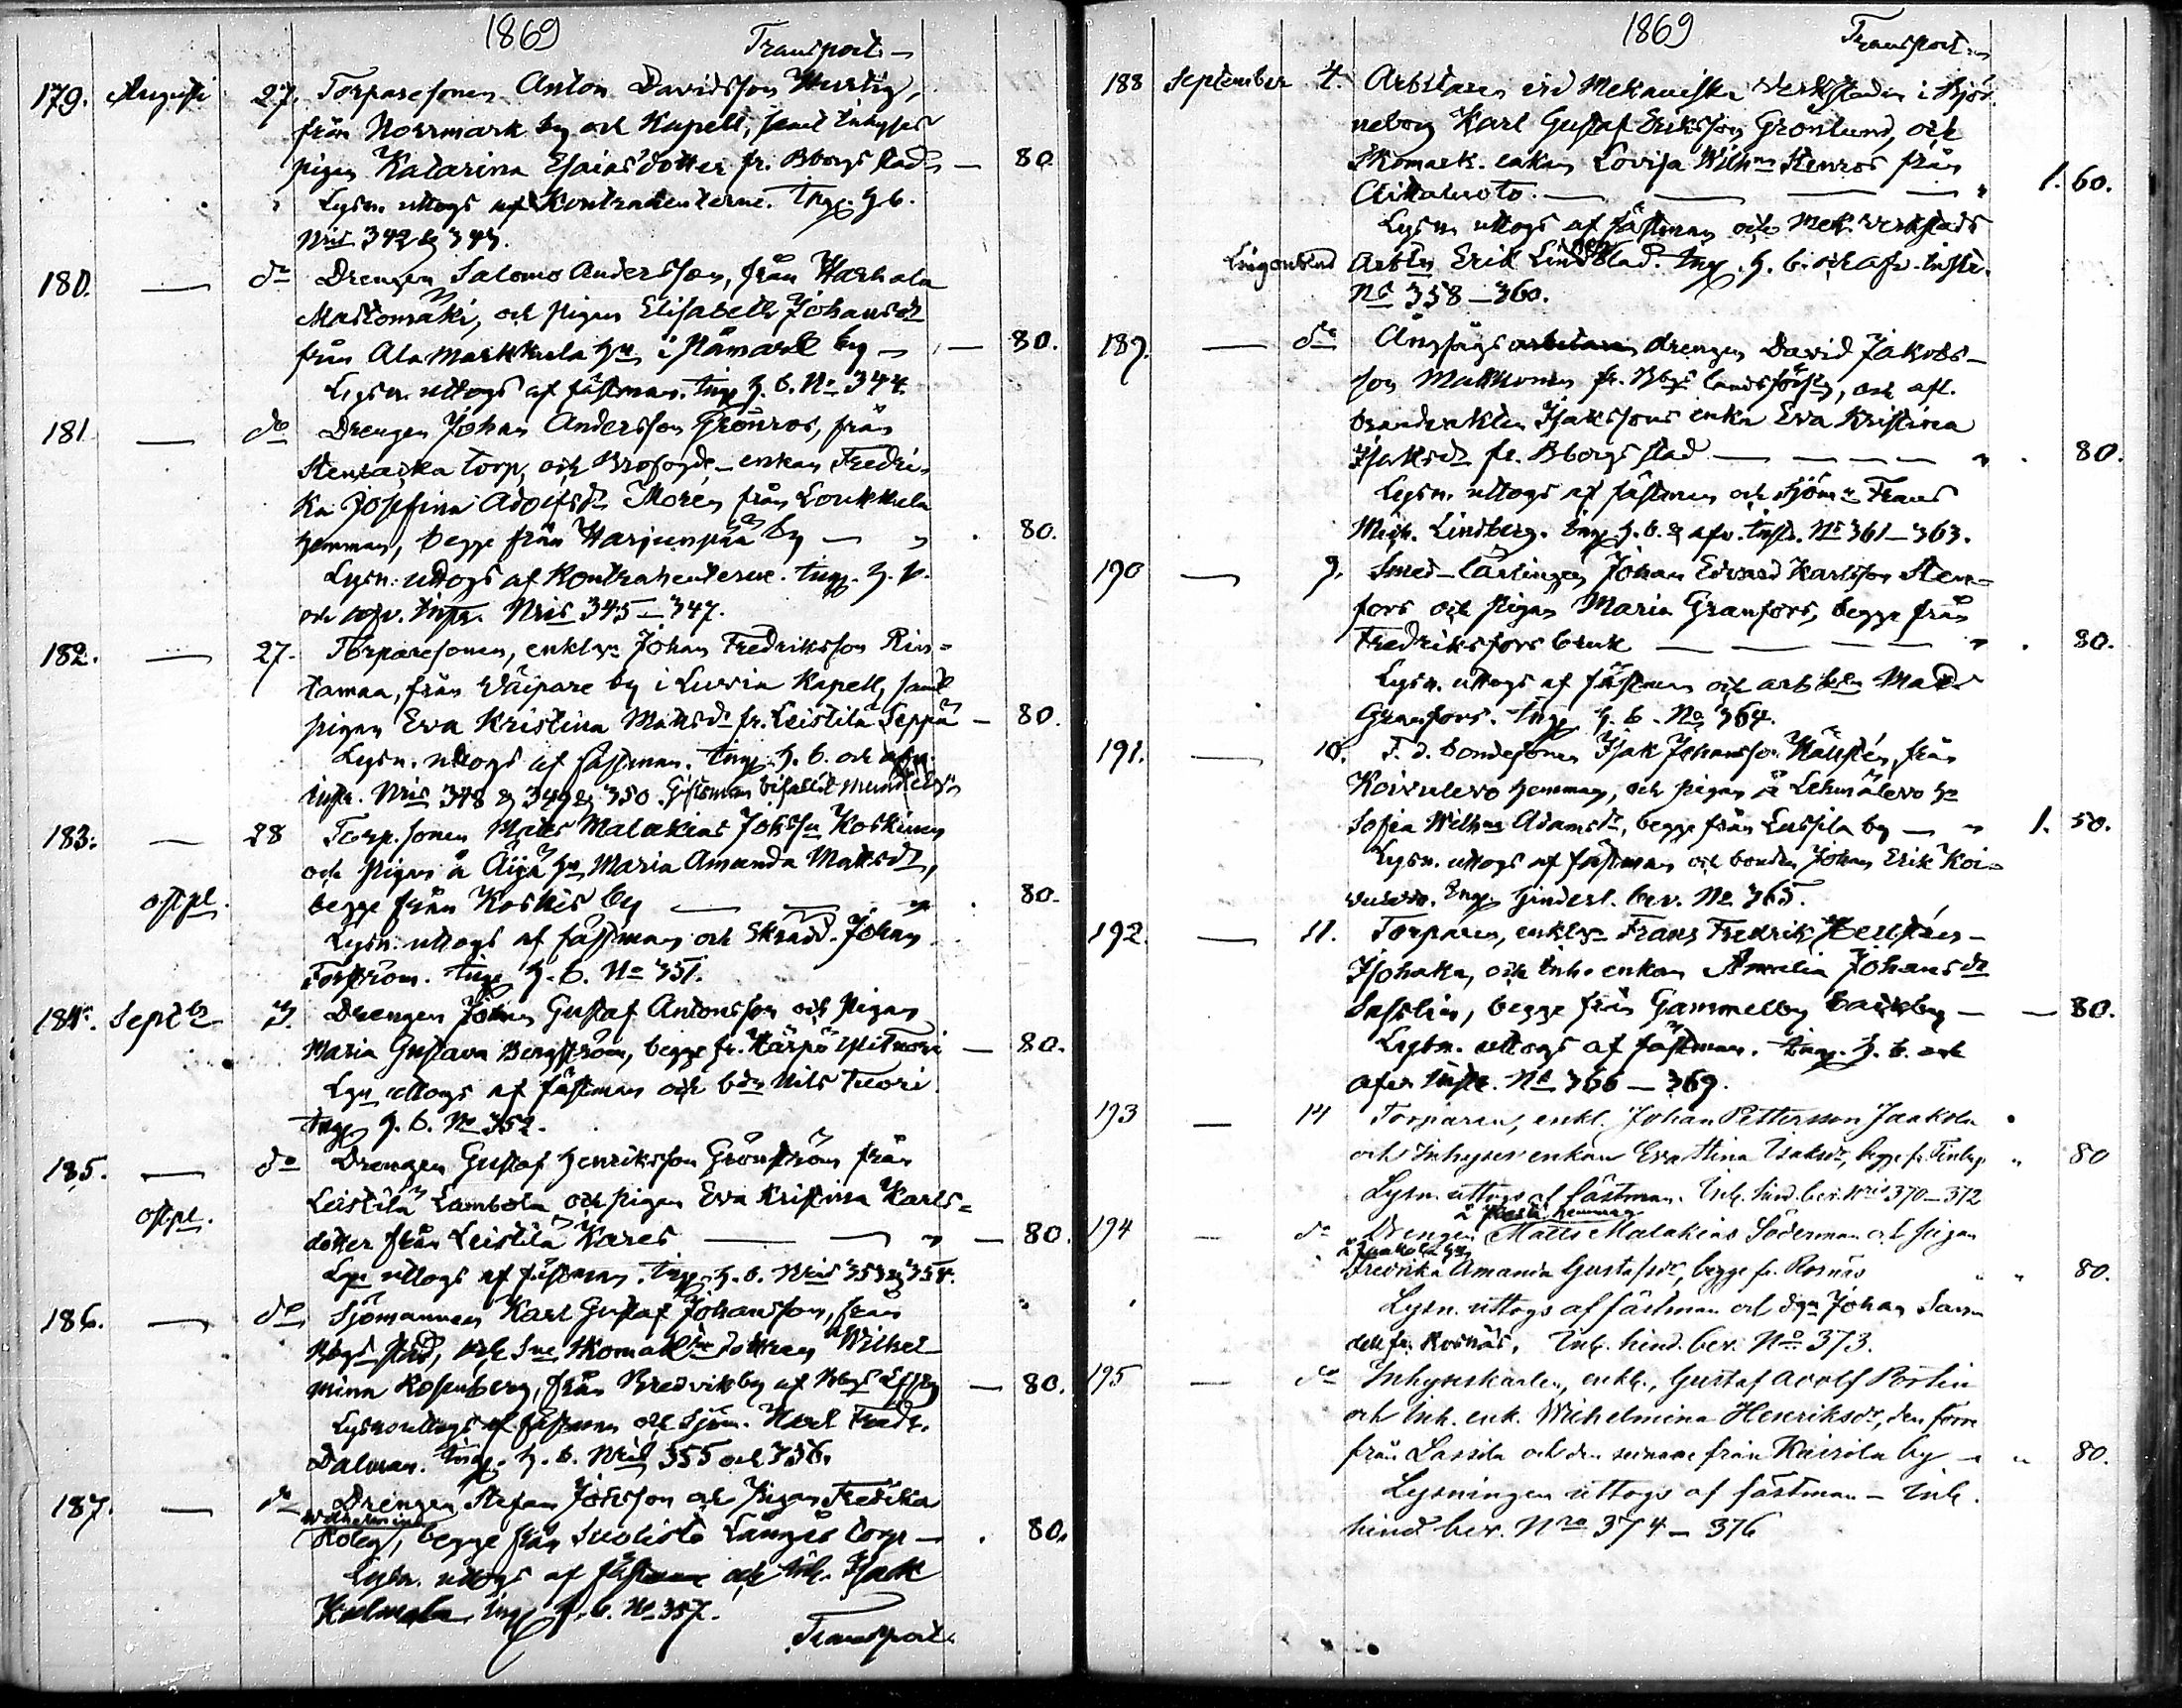 1869
Transport
179. Augusti 27. Torparesonen Anton Davidsson Hurtig,
från Norrmark by och Kapell, samt Inhyses
pigan Katarina Esaiasdotter fr. Bborgs stad — 80
Lysn. uttogs af Kontrahenterne. Ing. h.b.
Nris 342 & 343.
180. — do Drengen Salomo Andersson, från Harhala
Mastomäki, och pigan Elisabeth Johansdr
från Ala Markkula hn i Påmark by — 80.
Lysn. uttogs af fästman. Ing. h.b. No 344.
181 — do Drengen Johan Andersson Grönros, från
Stenbacka torp, och Brofogde-enkan Fredri-
ka Josefina Adolfsdr Morén från Loukkula
hemman, begge från Harjunpää by — 80.
Lysn. uttogs af Kontrahenterne. Ing. h.b.
och afv. Instr. Nris 345–347.
182. — 27. Torparesonen, enkl. Johan Fredriksson Rin-
tamaa, från Väipare by i Luvia Kapell, samt
pigan Eva Kristina Mattsdr fr. Leistilä Seppä — 80.
Lysn. uttogs af fästman. Ing. h.b. och afv.
instr. Nris 348 & 349 & 350. Giftoman bifallit
183. — 28 Torp.sonen Malakias Koskinen
och pigan å Äijä hn Maria Amanda Mattsdr,
begge från Koskis by — 80.
Lysn. uttogs af fästman och Skrädd. Johan
Forsström. Ing. h.b. No 351.
184. Septbr 3. Drengen Johan Gustaf Antonsson och pigan
Maria Gustava Bergström, begge fr. — 80.
Lysn uttogs af fästman och bdn Nils Tuori
Ing. h.b. No 352.
185. — do Drengen Gustaf Henriksson Grönström från
Leistilä Lambola och pigan Eva Kristina Karls-
dotter från Leistilä Kares — 80.
Lysn uttogs af fästman. Ing. h.b. Nris 353 & 354.
186. — do Sjömannen Karl Gustaf Johansson, från
Bbgs stad, och Wilhel-
mina Rosenberg, från Bredvikby af Bbgs — 80.
Lysn uttogs af fästman och Sjöm. Karl Fredr.
Dalman. Ing. h.b. Nris 355 och 356.
187. — do Drengen Stefan och Pigan Fredrika
Wilhelmina
begge från Suolisto Långäs torp — 80.
Lysn. uttogs af fästman och Inh. Isak
Ing. h.b. No 357.
Transport
1869
Transport
188 September 4. Arbetaren vid Mekaniska Verkstaden i Björ-
neborg Karl Gustaf Eriksson Grönlund, och
Skomak. enkan Lovisa Wilhna Stenros från
Aittaluoto. — 1. 60.
Lysn. uttogs af fästman och Mek. Verkstads
Arbtn Erik Lindblad. Ing. h.b. och afv. Instr.
No 358–360.
189. — do Ångsågs drengen David Jakobs-
son Makkonen fr. Bbgs landsförsg, och afl.
brandvakten Isakssons enka Eva Kristina
Isaksdr fr. Bborgs stad — 80.
Lysn. uttogs af fästman och Sjömn Frans
Mich. Lindberg. Ing. h.b. & afv. Instr. No 361–363.
190 — 9. Smed-lärlingen Johan Edvard Karlsson Sten-
fors och pigan Maria Granfors, begge från
Fredriksfors bruk — 80.
Lysn. uttogs af fästman och arbtn
Granfors. Ing. h.b. No 364.
191. — 10. F.d. bondesonen Isak Johansson Hällstén, från
Koivulevo hemman, och pigan å hn
Sofia Wilhna Adamsdr, begge från by — 1. 50.
Lysn. uttogs af fästman och bonden Johan Erik Koi-
Ing. hinderl. bev. No 365.
192. — 11. Torparen, enkl. Frans Fredrik Hellstén-
Isohaka, och Inh. enkan Amalia Johansdr
begge från Gammelby — 80.
Lysn. uttogs af fästman. Ing. h.b. och
afv. Instr. No 366–369.
193 — 14 Torparen, enkl. Johan Pettersson Jaakola
och Inhyses enkan Eva Stina Isaksdr, begge fr. Finby 80
Lysn. uttogs af fästman. Ink. hind. bev. Nris 370–372
194 — do Drengen Matts Malakias Söderman och pigan
å Jaakola hn
Fredrika Amanda Gustafsdr, begge fr. Rosnäs 80.
Lysn. uttogs af fästman och dgn Johan
fr. Rosnäs. Ink. hind. bev. No 373.
195 — do Inhyseskarlen, enkl., Gustaf Adolf Portin
och Inh. enk. Wilhelmina Henriksdr, den förre
från Lassila och den senare från Kairila by 80.
Lysningen uttogs af fästman – Ink.
hind. bev. Nro 374–376